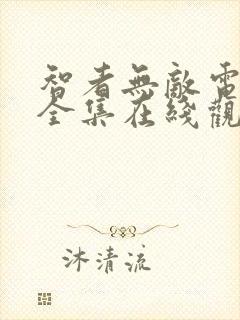 智者無敵電
全集在綫觀
沐清流